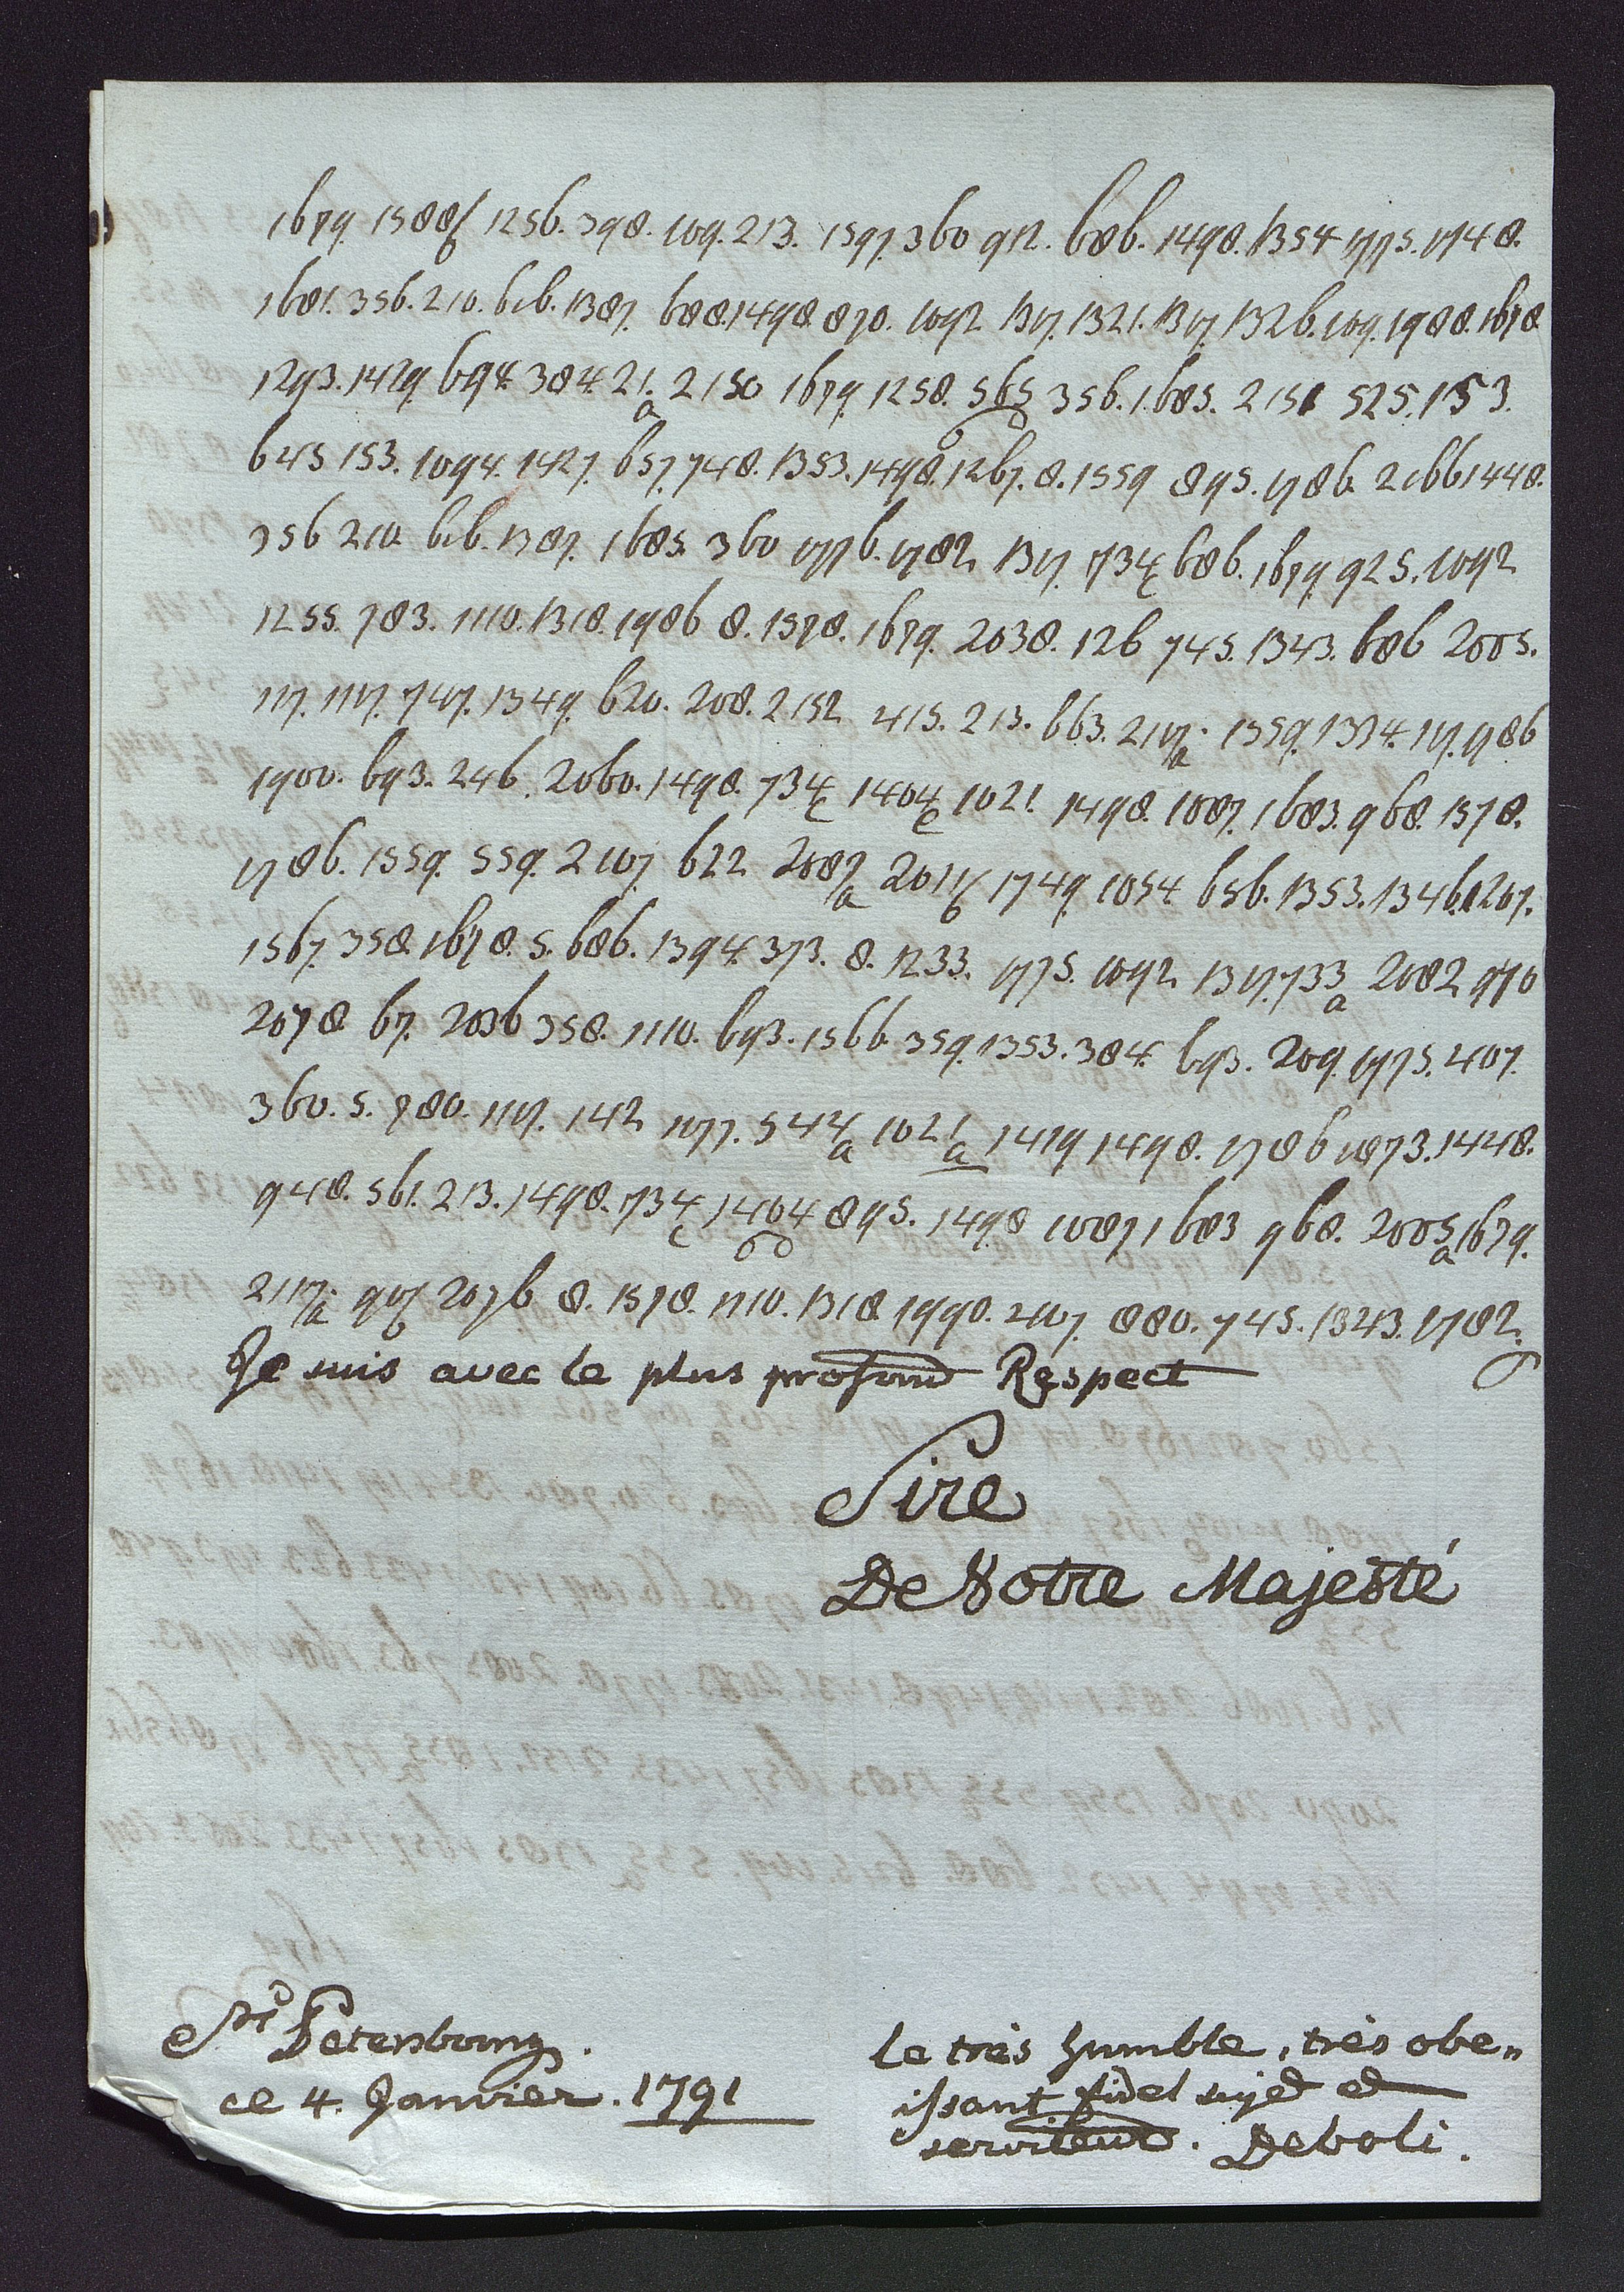 1679. 1588b 1256. 398. 109. 213. 1597. 360 912. 686. 1498. 1354 1775. 1748.
1681. 356. 210. 616. 1387. 688. 1498. 870. 1092 1317. 1321. 1317. 1326. 109. 1988. 1678
1293. 1429. 694. 384. 21.a 2150 1679. 1258. 565 356. 1685. 2151 525. 153.
645 153. 1094. 1427. 657. 748. 1353. 1498. 1267. 8. 1559 895. 1786. 2166 1448.
356 210. 616. 1387. 1685. 360 1776. 1782. 1317. 734c 686. 1679. 925. 1092
1255. 783. 1110. 1318. 1986 8. 1578. 1679. 2038. 126 745. 1343. 686 2005.
117. 1117. 747. 1349. 620. 208. 2152 415. 213. 663. 2117a. 1559. 1374. 117. 1786
1900. 693. 246. 2060. 1498. 734c 1404c 1021. 1498. 1087. 1683. 968. 1578.
1786. 1559. 559. 2107. 622 2087a 2011b 1749. 1054 656. 1353. 1346. 1207.
1567. 358. 1678. 5. 686. 1394. 373. 8. 1233. 1775. 1092 1317. 733a 2082 970
2078 67. 2036 358. 1110. 693. 1566. 359. 1353. 384. 693. 209. 1775. 407.
360. 5. 780. 1117. 142 1077. 544a 1021a 1419 1498. 1786 1873. 1448.
948. 561. 213. 1498. 734c 1404 895. 1498 1087 1683 968. 2005a 1679.
2117a. 907b 2076 8. 1578. 1110. 1318. 1990. 407. 880. 745. 1343. 1782.
Je suis avec le plus profond Respect
Sire
De Votre Majesté
St Petersbourg.
ce 4. Janvier. 1791
le très humble, très obe„
issant fidel sujet et
serviteur. Deboli.